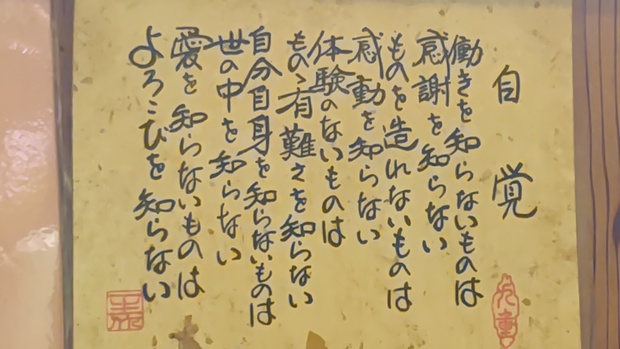 自覚
働きを知らないものは
感謝を知らない
ものを造れないものは
感動を知らない
体験のないものは
もの〻有難さを知らない
自分自身を知らないものは
世の中を知らない
愛を知らないものは
よろこびを知らない